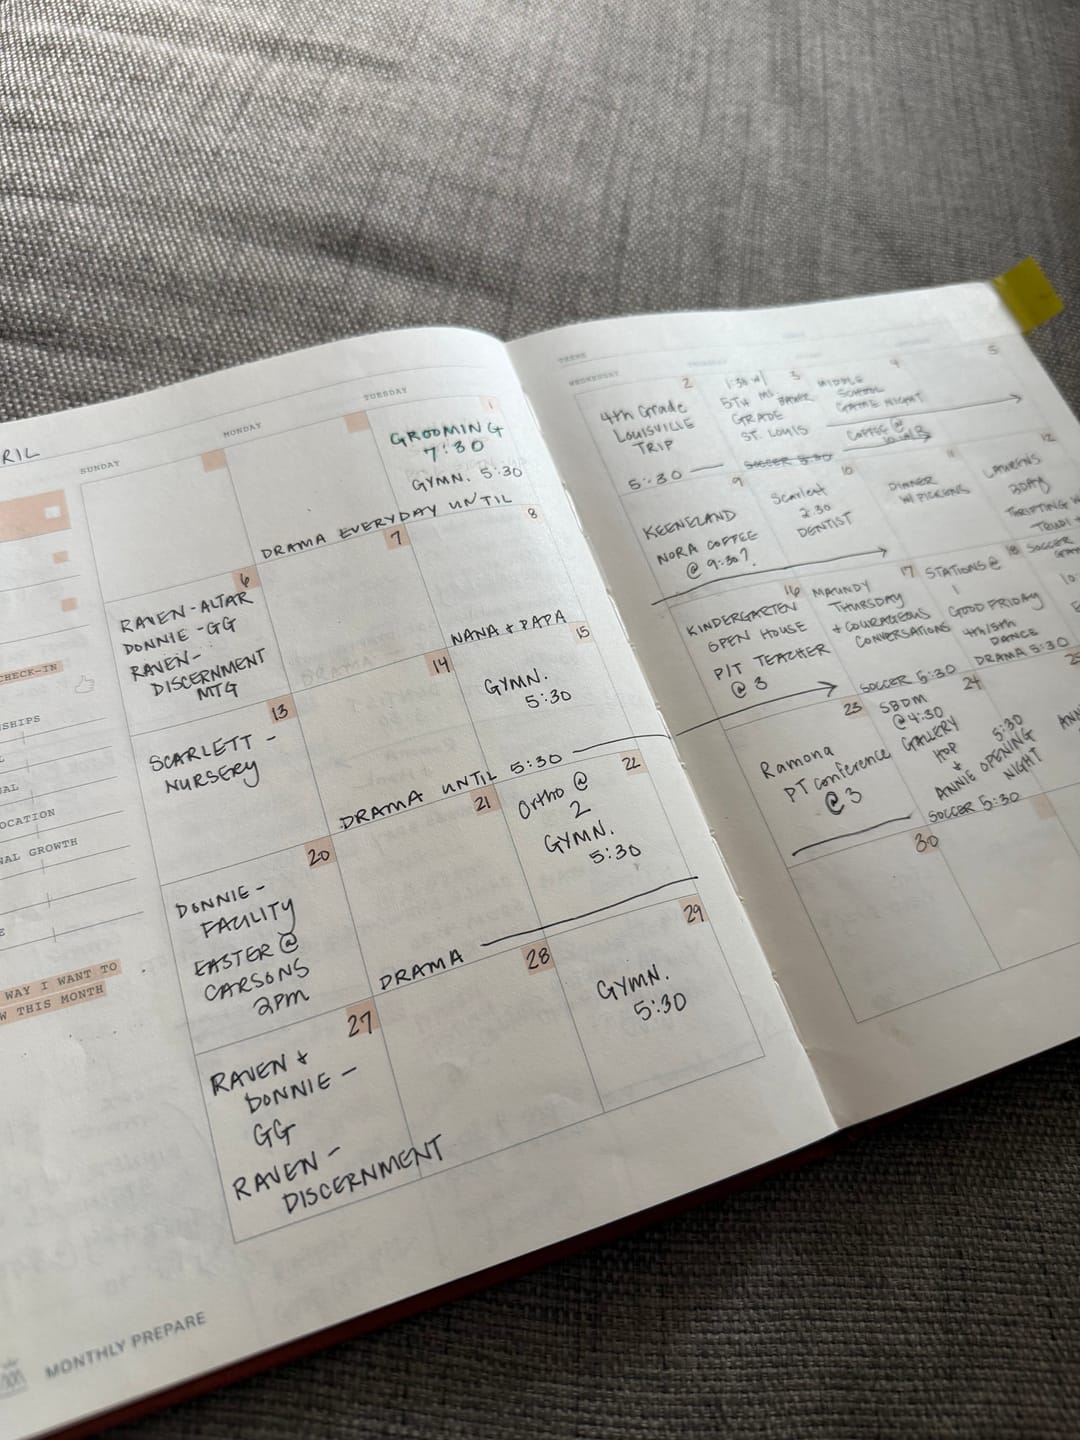 RIL
SUNDAY
MONDAY
TUESDAY
1
GROOMING
7:30
GYMN. 5:30
DRAMA EVERYDAY UNTIL
6
RAVEN - ALTAR
DONNIE - GG
RAVEN -
DISCERNMENT
MTG
7
8
NANA + PAPA
13
SCARLETT -
NURSERY
14
15
GYMN.
5:30
DRAMA UNTIL 5:30
20
DONNIE -
FACILITY
EASTER @
CARSONS
2PM
21
22
Ortho @
2
GYMN.
5:30
DRAMA
27
RAVEN +
DONNIE -
GG
RAVEN -
DISCERNMENT
28
29
GYMN.
5:30
CHECK-IN
SHIPS
AL
OCATION
AL GROWTH
WAY I WANT TO
W THIS MONTH
MONTHLY PREPARE
THEME
WEDNESDAY
THURSDAY
2
4th Grade
LOUISVILLE
TRIP
5:30
3
1:30 w/
5TH
GRADE
ST. LOUIS
SOCCER 5:30
4
MIDDLE
SCHOOL
GAME NIGHT
COFFEE @
5
9
KEENELAND
NORA COFFEE
@ 9:30?
10
Scarlett
2:30
DENTIST
11
DINNER
W/ PICKENS
12
LAUREN'S
BDAY
THRIFTING W
TRUDI +
SOCCER
16
KINDERGARTEN
OPEN HOUSE
P/T TEACHER
@ 3
17
MAUNDY
THURSDAY
+ COURAGEOUS
CONVERSATIONS
SOCCER 5:30
18
STATIONS @
1
GOOD FRIDAY
4th/5th
DANCE
DRAMA 5:30
23
Ramona
PT Conference
@ 3
24
SBDM
@ 4:30
GALLERY
HOP
+ 5:30
ANNIE OPENING
NIGHT
SOCCER 5:30
30